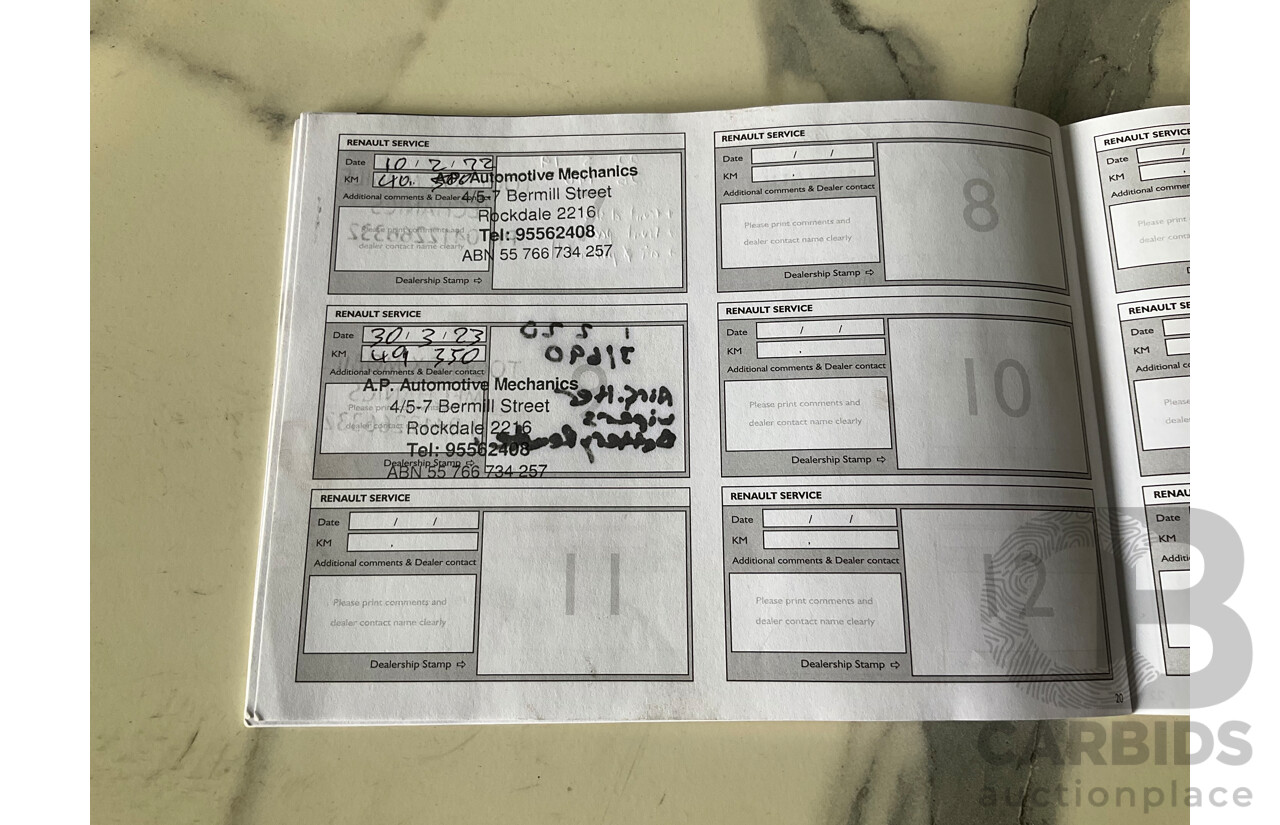 RENAULT SERVICE
Date 10 / 2 / 22
KM 40.
Additional comments & Dealer contact
Please print comments and
dealer contact name clearly
Dealership Stamp ⇨
A.P. Automotive Mechanics
4/5-7 Bermill Street
Rockdale 2216
Tel: 95562408
ABN 55 766 734 257
RENAULT SERVICE
Date / /
KM .
Additional comments & Dealer contact
Please print comments and
dealer contact name clearly
Dealership Stamp ⇨
8
RENAULT SERVICE
Date 30 / 3 / 23
KM 49.350
Additional comments & Dealer contact
Please print comments and
dealer contact name clearly
Dealership Stamp ⇨
A.P. Automotive Mechanics
4/5-7 Bermill Street
Rockdale 2216
Tel: 95562408
ABN 55 766 734 257
9
RENAULT SERVICE
Date / /
KM .
Additional comments & Dealer contact
Please print comments and
dealer contact name clearly
Dealership Stamp ⇨
10
RENAULT SERVICE
Date / /
KM .
Additional comments & Dealer contact
Please print comments and
dealer contact name clearly
Dealership Stamp ⇨
11
RENAULT SERVICE
Date / /
KM .
Additional comments & Dealer contact
Please print comments and
dealer contact name clearly
Dealership Stamp ⇨
12
20
RENAULT SERVICE
Date /
KM
Additional commen
Please print
dealer conta
RENAULT SE
Date
KM
Additional c
Please
dealer
RENAU
Date
KM
Additi
CB
CARBIDS
auctionplace